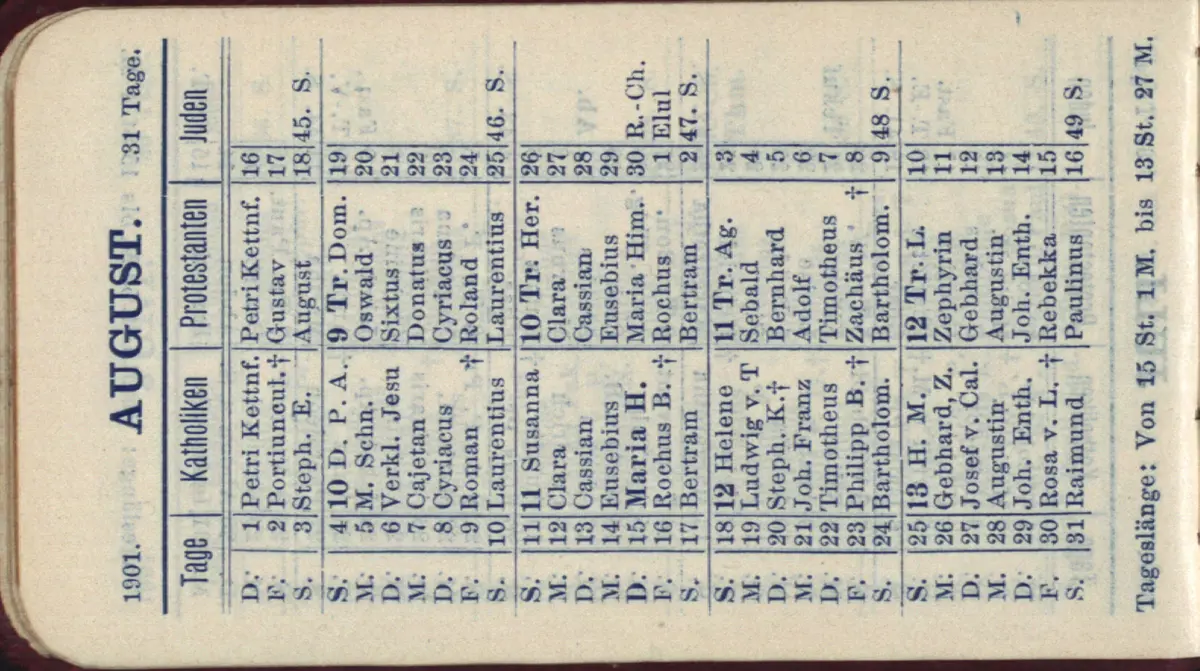 1901. AUGUST. 31 Tage.
Tage Katholiken Protestanten Juden
D. 1 Petri Kettnf. Petri Kettnf. 16
F. 2 Portiuncul. † Gustav 17
S. 3 Steph. E. August 18 45. S.
S. 4 10 D. P. A. 9 Tr. Dom. 19
M. 5 M. Schn. Oswald 20
D. 6 Verkl. Jesu Sixtus 21
M. 7 Cajetan Donatus 22
D. 8 Cyriacus Cyriacus 23
F. 9 Roman † Roland 24
S. 10 Laurentius Laurentius 25 46. S.
S. 11 11 Susanna. 10 Tr. Her. 26
M. 12 Clara Clara 27
D. 13 Cassian Cassian 28
M. 14 Eusebius Eusebius 29
D. 15 Maria H. Maria Him. 30 R.-Ch.
F. 16 Rochus B. † Rochus 1 Elul
S. 17 Bertram Bertram 2 47. S.
S. 18 12 Helene 11 Tr. Ag. 3
M. 19 Ludwig v. T Sebald 4
D. 20 Steph. K. † Bernhard 5
M. 21 Joh. Franz Adolf 6
D. 22 Timotheus Timotheus 7
F. 23 Philipp B. † Zachäus † 8
S. 24 Bartholom. Bartholom. 9 48 S.
S. 25 13 H. M. 12 Tr. L. 10
M. 26 Gebhard, Z. Zephyrin 11
D. 27 Josef v. Cal. Gebhard 12
M. 28 Augustin Augustin 13
D. 29 Joh. Enth. Joh. Enth. 14
F. 30 Rosa v. L. † Rebekka 15
S. 31 Raimund Paulinus 16 49 S.
Tageslänge: Von 15 St. 1 M. bis 13 St. 27 M.